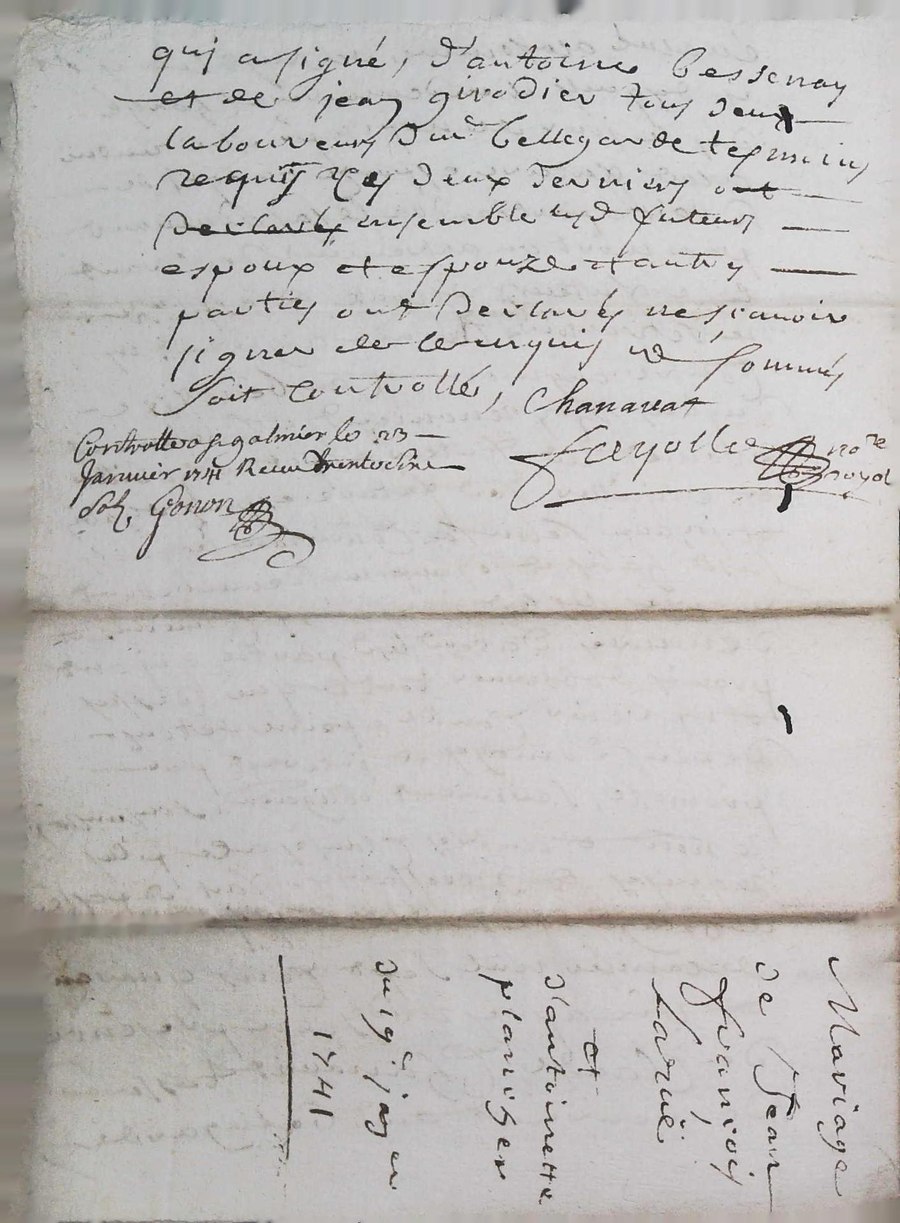 qui a signé, d'antoine bessenay
et de jean girodier tous deux
laboureurs dud bellegarde tesmoins
requis ces deux derniers ont
declarés ensemble lesd futeurs
espoux et espouze et autres
parties ont declarés ne scavoir
signer de ce enquis et sommés
soit controllé, Chanavat
fayolle no.re royal
Controllé a st galmier le 23
Janvier 1741 Receu trente
solz, Gonon
Mariage
de Jean
françois
Larue
et
d'antoinette
planiher
du 19e janer
1741